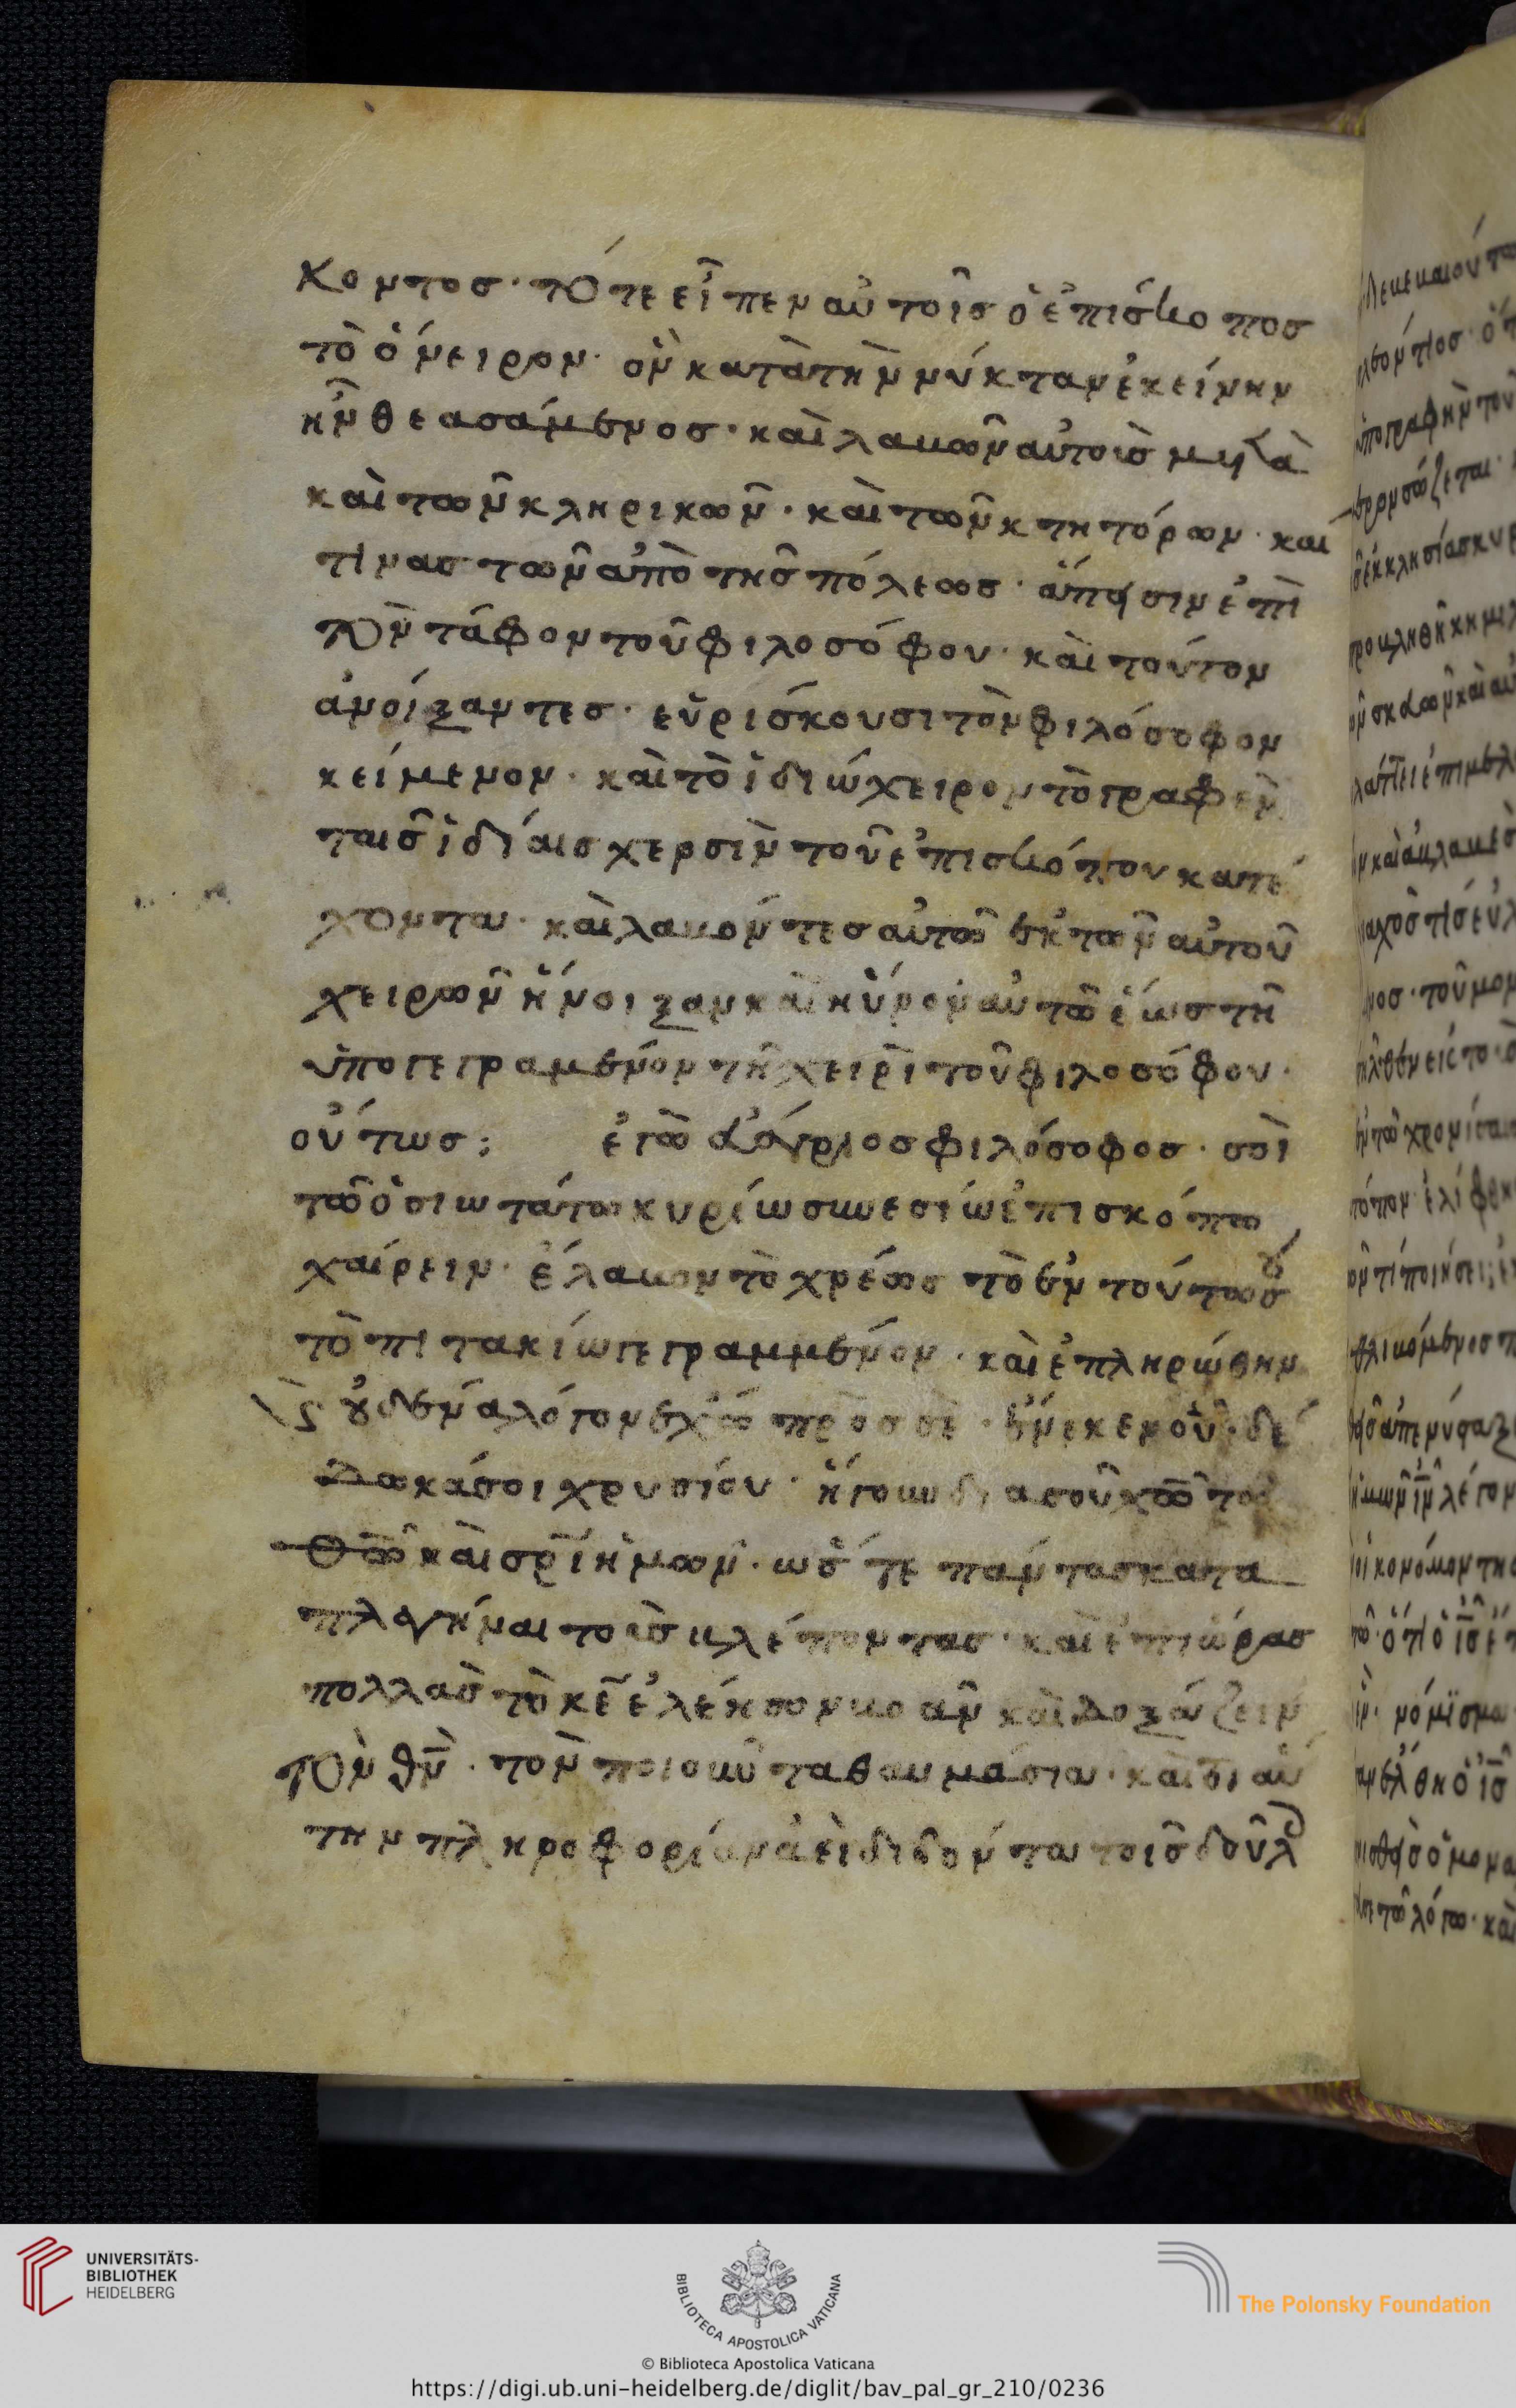 κοντος· τότε εἶπεν αὐτοῖς ὁ ἐπίσκοπος
τὸ ὄνειρον· ὃν κατὰ τὴν νύκταν ἐκείνην
ἦν θεασάμενος· καὶ λαβὼν αὐτοὺς μετὰ
καὶ τῶν κληρικῶν· καὶ τῶν κτητόρων· καί
τινας τῶν ἀπὸ τῆς πόλεως· ἄπεισιν ἐπὶ
τὸν τάφον τοῦ φιλοσόφου· καὶ τοῦτον
ἀνοίξαντες· εὑρίσκουσι τὸν φιλόσοφον
κείμενον· καὶ τὸ ἰδιώχειρον τὸ γραφὲν
ταῖς ἰδίαις χερσὶν τοῦ ἐπισκόπου κατέ
χοντα· καὶ λαβόντες αὐτῶ ἐκ τῶν αὐτοῦ
χειρῶν ἤνοιξαν καὶ ηὗρον αὐτῶ ἕως τῆ
ὑπογεγραμένον τῆ χειρὶ τοῦ φιλοσόφου·
οὕτως; ἐγὼ Εὐάγριος φιλόσοφος· σοὶ
τῶ ὁσιωτάτω κυρίω συνεσίω ἐπισκόπω
χαίρειν· ἔλαβον τὸ χρέως τὸ ἐν τούτοις
τὸ πιτακίω γεγραμμένον· καὶ ἐπληρώθην
κς οὐδένα λόγον ἔχω πρὸς σὲ· ἕνεκεν οὗ· δέ
δωκά σοι χρυσίου· ἤγουν διὰ σοῦ χῶ τῶ
θῶ καὶ σρι ἡμῶν· ὥστε πάντας κατα
πλαγῆναι τοὺς βλέποντας· καὶ ἐπὶ ὥρας
πολλὰς τὸ κε ἐλέησον βοᾶν καὶ δοξάζειν
τὸν θν· τὸν ποιοῦντα θαυμάσια· καὶ τοιαύ
την πληροφορίαν ἀεὶ διδόντα τοῖς δούλ
UNIVERSITÄTS-
BIBLIOTHEK
HEIDELBERG
BIBLIOTECA APOSTOLICA VATICANA
The Polonsky Foundation
© Biblioteca Apostolica Vaticana
https://digi.ub.uni-heidelberg.de/diglit/bav_pal_gr_210/0236